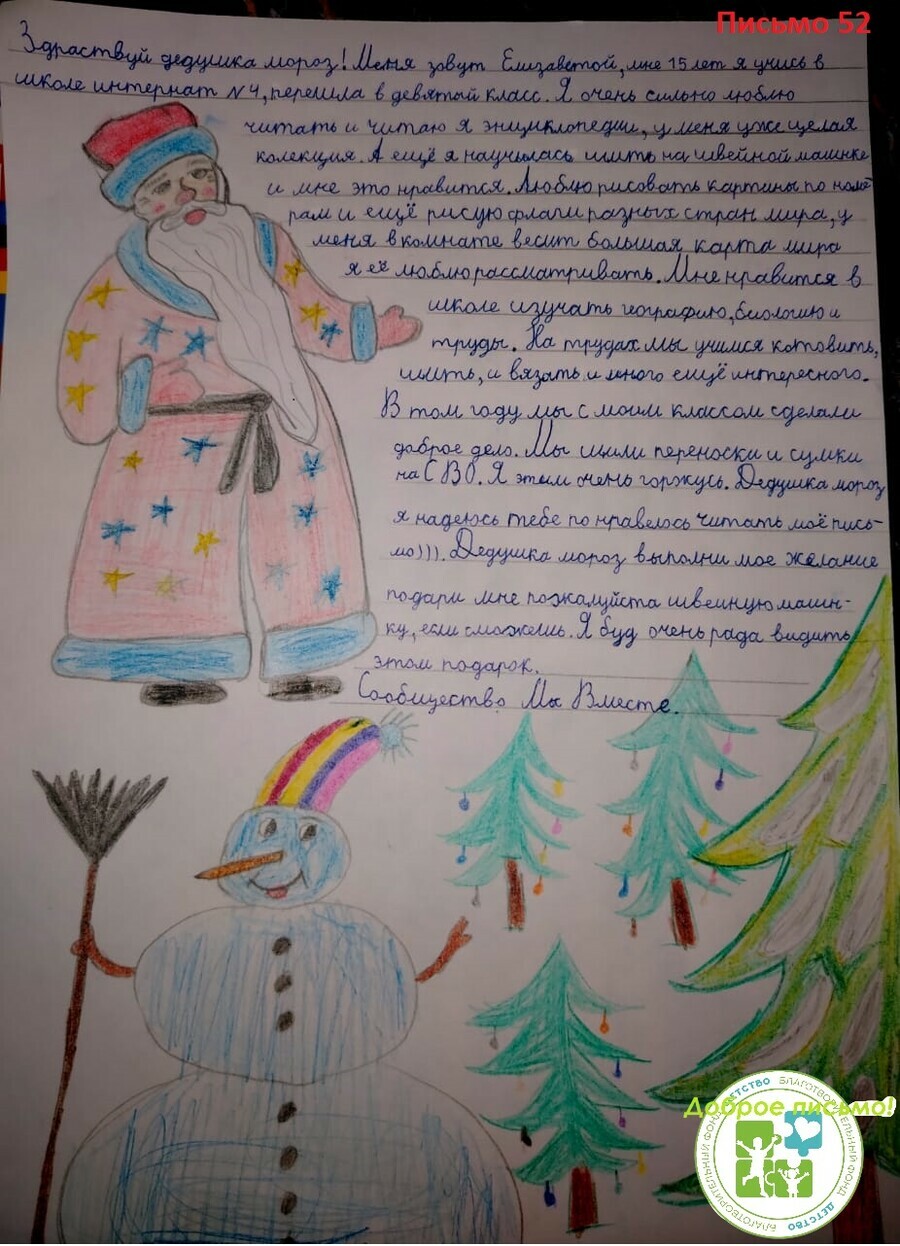 Письмо 52
Здраствуй дедушка мороз! Меня зовут Елизаветой, мне 15 лет я учись в
школе интернат №4, перешла в девятый класс. Я очень сильно люблю
читать и читаю я энциклопедии, у меня уже целая
колекция. А ещё я научилась шить на швейной машинке
и мне это нравится. Люблю рисовать картины по номе-
рам и ещё рисую флаги разных стран мира, у
меня в комнате весит большая карта мира
я её люблю рассматривать. Мне нравится в
школе изучать географию, биологию и
труды. На трудах мы учимся готовить,
шить, и вязать и много ещё интересного.
В том году мы с моим классом сделали
доброе дело. Мы шили переноски и сумки
на СВО. Я этим очень горжусь. Дедушка мороз
я надеюсь тебе по нравелось читать моё пись-
мо))). Дедушка мороз выполни мое желание
подари мне пожалуйста швеиную машин-
ку, если сможешь. Я буд очень рада видить
этом подарок.
Сообщество Мы Вместе.
Доброе письмо!
БЛАГОТВОРИТЕЛЬНЫЙ ФОНД ДЕТСТВО БЛАГОТВОРИТЕЛЬНЫЙ ФОНД ДЕТСТВО